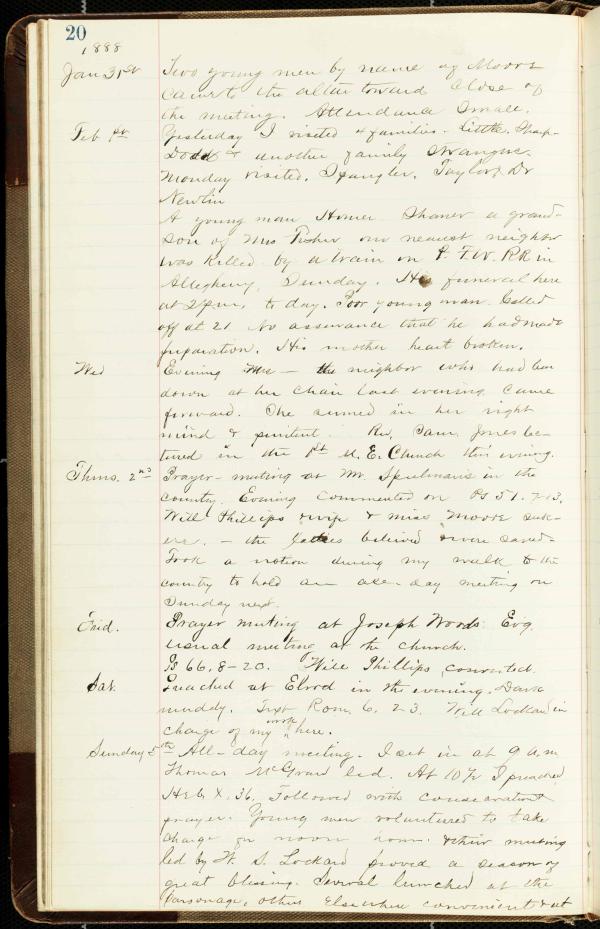 20
1888
Jan 31st Two young men by name of Moore
came to the altar toward close of
the meeting. Attendance small.
Feb 1st Yesterday I visited 4 families. Little, Sharp-
Dodds & another family strangers.
Monday visited. Spangler, Taylor & Dr
Newlin
A young man Homer Shaner a grand-
son of Mrs Fisher our nearest neighbor
was killed by a train on P. F.W. RR in
Allegheny, Sunday. His funeral here
at 2 pm. to day. Poor young man. Called
off at 21 No assurance that he had made
preparation. His mother heart broken.
Wed Evening Mrs — the neighbor who had been
down at her chair last evening came
forward. She seemed in her right
mind & penitent. Rev. Sam Jones lec-
tured in the 1st M. E. Church this evening.
Thurs. 2nd Prayer-meeting at Mr. Spielman's in the
country. Evening commented on Ps 51. 7-13.
Will Phillips & wife & miss Moore seek-
ers. — the ladies believed & were saved.
Took a notion during my walk to the
country to hold an all-day meeting on
Sunday next.
Frid. Prayer meeting at Joseph Woods. Evg.
usual meeting at the church.
Ps 66. 8-20. Will Phillips converted.
Sat. Preached at Elrod in the evening. Dark
muddy. Text Rom. 6. 23. Will Lockard in
charge of my work here.
Sunday 5th All-day meeting. I set in at 9 a.m
Thomas McGraw led. At 10½ I preached
Heb X. 36. Followed with consecration
prayer. Young men volunteered to take
charge of noon hour & their meeting
led by W. S. Lockard proved a season of
great blessing. Several lunched at the
Parsonage, others elsewhere convenient & at